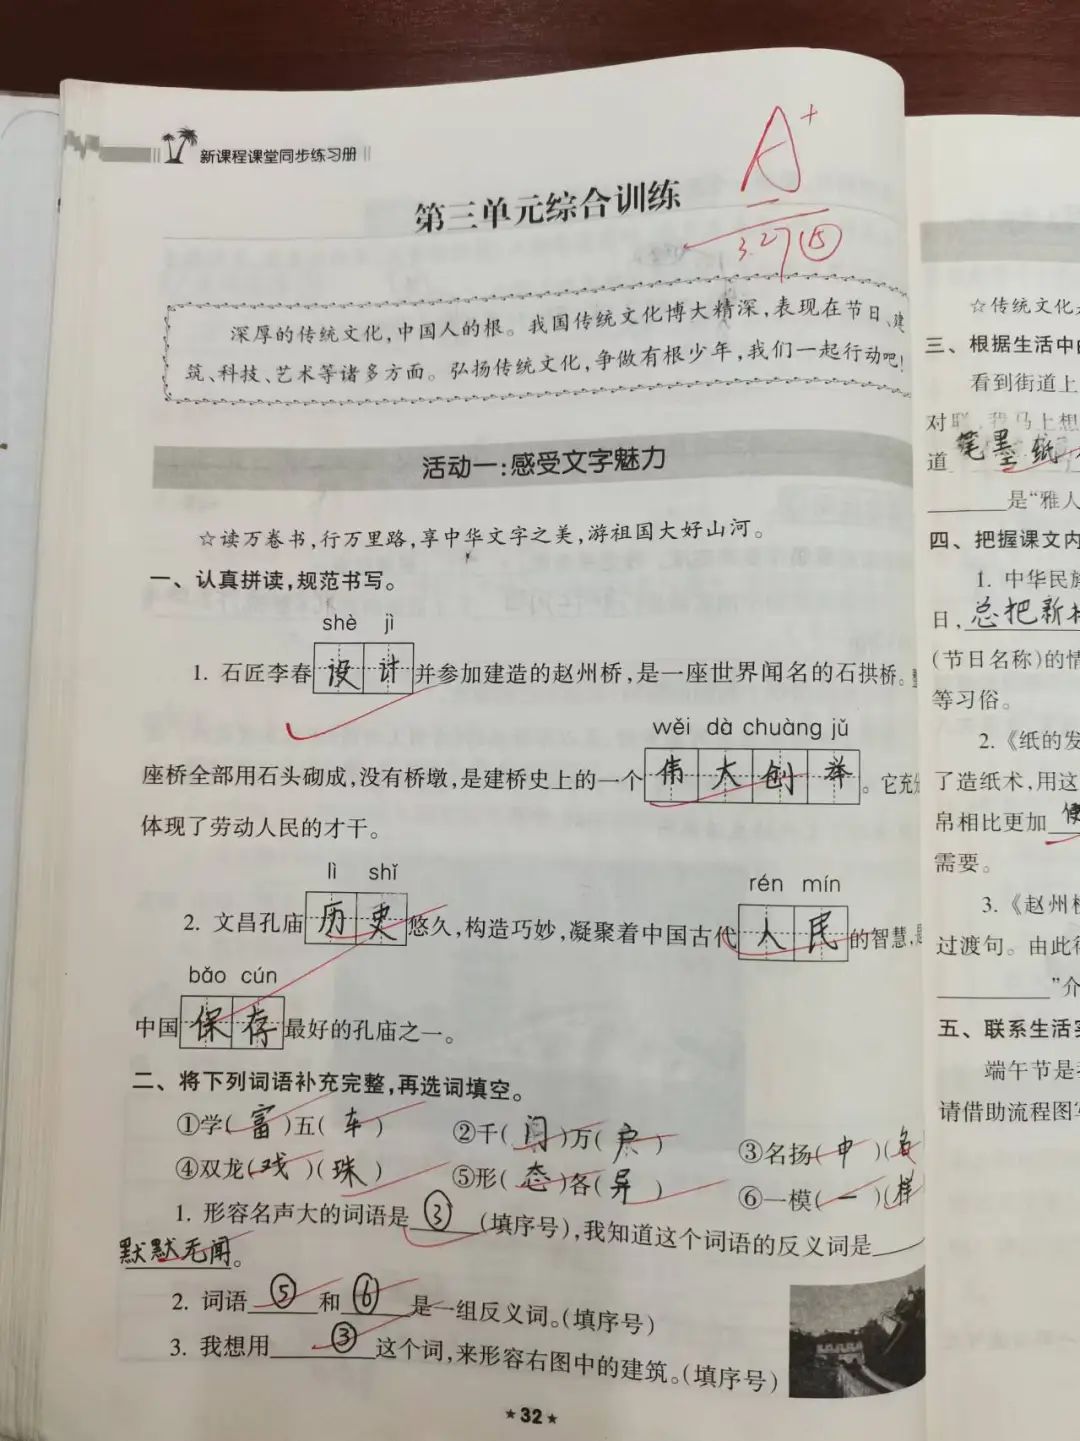 新课程课堂同步练习册
A+
第三单元综合训练
3.27 15
深厚的传统文化,中国人的根。我国传统文化博大精深,表现在节日、建
筑、科技、艺术等诸多方面。弘扬传统文化,争做有根少年,我们一起行动吧!
活动一:感受文字魅力
☆读万卷书,行万里路,享中华文字之美,游祖国大好山河。
一、认真拼读,规范书写。
shè jì
1. 石匠李春设计并参加建造的赵州桥,是一座世界闻名的石拱桥。整
wěi dà chuàng jǔ
座桥全部用石头砌成,没有桥墩,是建桥史上的一个伟大创举。它充分
体现了劳动人民的才干。
lì shǐ rén mín
2. 文昌孔庙历史悠久,构造巧妙,凝聚着中国古代人民的智慧,
bǎo cún
中国保存最好的孔庙之一。
二、将下列词语补充完整,再选词填空。
①学(富)五(车) ②千(门)万(户) ③名扬(中)(名
④双龙(戏)(珠) ⑤形(态)各(异) ⑥一模(一)(样
1. 形容名声大的词语是③(填序号),我知道这个词语的反义词是
默默无闻。
2. 词语⑤和⑥是一组反义词。(填序号)
3. 我想用③这个词,来形容右图中的建筑。(填序号)
★32★
☆传统文化
三、根据生活中的
看到街道上
对联,我马上想
道笔墨纸
是“雅人
四、把握课文内
1. 中华民族
日,总把新桃
(节日名称)的情
等习俗。
2.《纸的发
了造纸术,用这
帛相比更加便
需要。
3.《赵州桥
过渡句。由此
”介
五、联系生活实
端午节是
请借助流程图